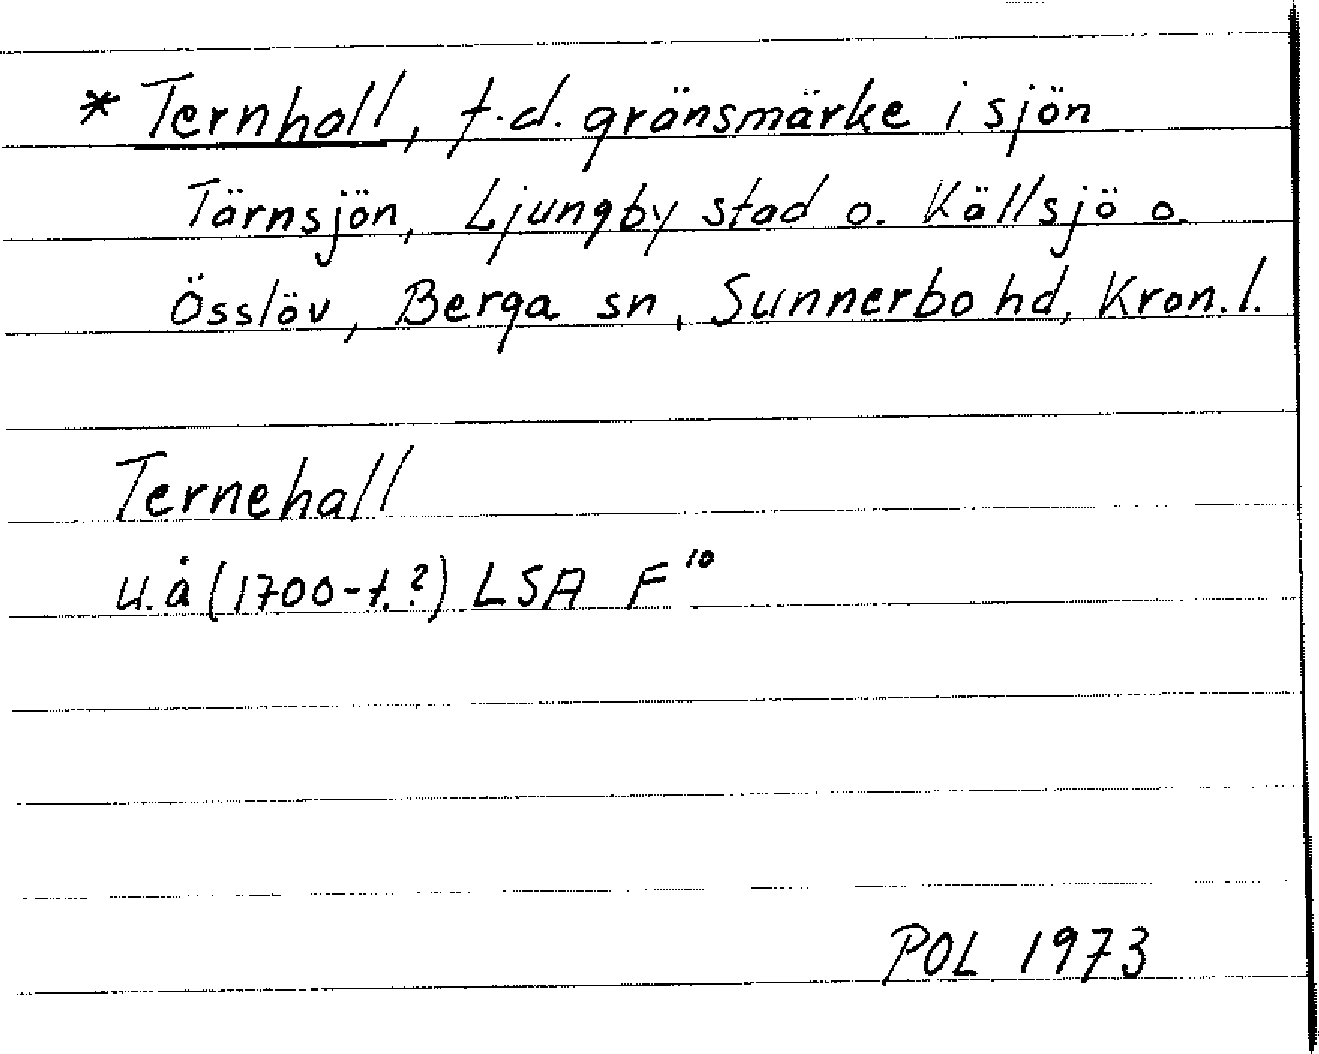 * Ternhall, f.d. gränsmärke i sjön
Tärnsjön, Ljungby stad o. Källsjö o.
Össlöv, Berga sn, Sunnerbo hd, Kron.l.
Ternehall
u.å (1700-t.?) LSA F¹⁰
POL 1973